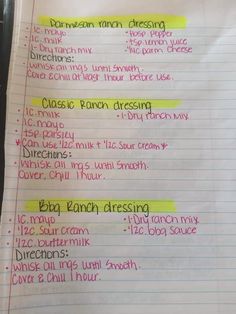 Parmesan ranch dressing
•1c. mayo •1tbsp. pepper
•1c. milk •1tsp. lemon juice
•1-Dry ranch mix •1/4c. parm. cheese
Directions:
•whisk all ings until smooth.
Cover & chill at least 1 hour before use.
Classic Ranch dressing
•1c. milk •1-Dry ranch mix
•1c. mayo
•tsp. parsley
*Can use 1/2c. milk + 1/2c. sour cream*
Directions:
•Whisk ings until smooth.
Cover, Chill 1 hour.
Bbq Ranch dressing
•1c. mayo •1-Dry ranch mix
•1/2c. sour cream •1/2c. bbq sauce
•1/2c. buttermilk
Directions:
•whisk all ings until smooth.
Cover & Chill 1 hour.